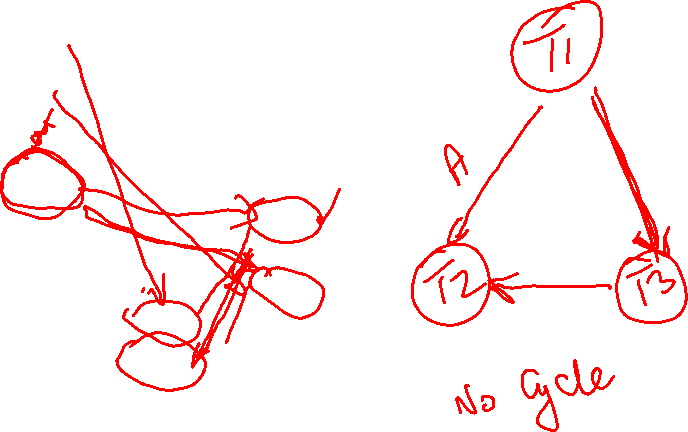 T1
A
T2
T3
No Cycle